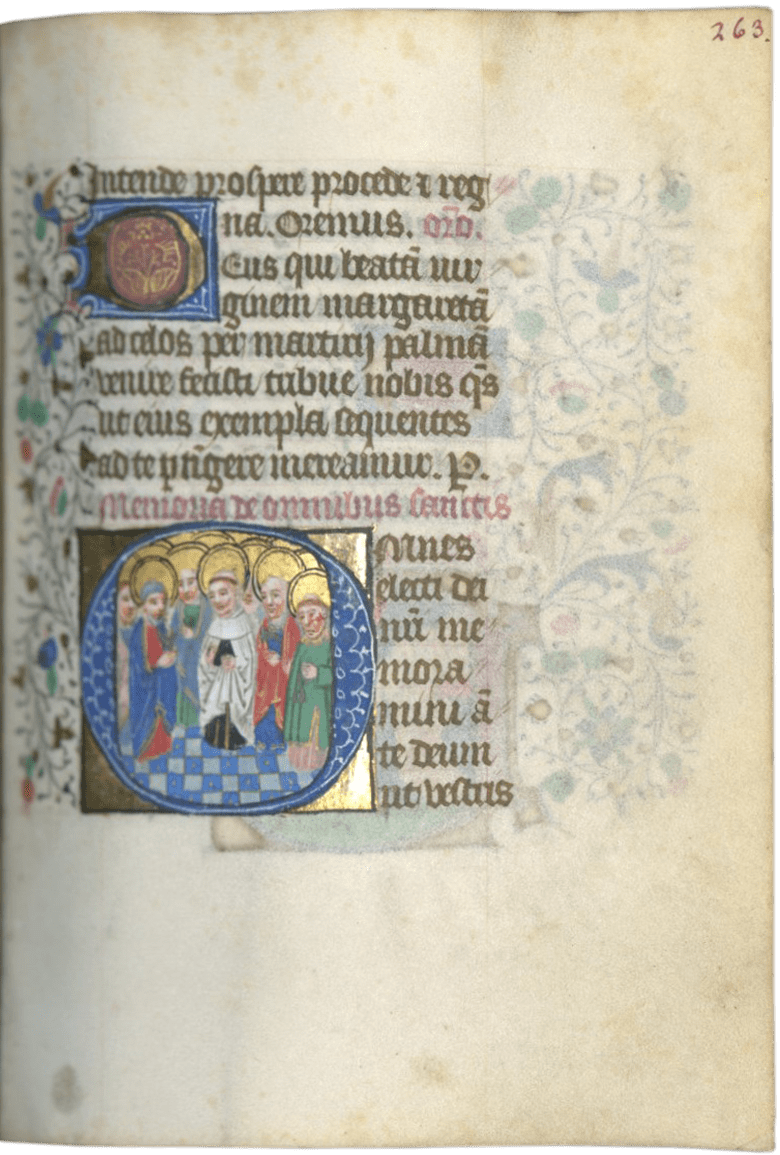 263.
Intende prospere procede ⁊ reg
na. Oremus. oro̅.
Deus qui beatā uir
ginem margaretā
ad celos per martirij palmā
venire fecisti tribue nobis qs̄
ut eius exempla sequentes
ad te ptīgere mereamur. P.
Memoria de omnibus sanctis
Omnes
electi dei
nr̄i me
mora
mini ā
te deum
ut vestris